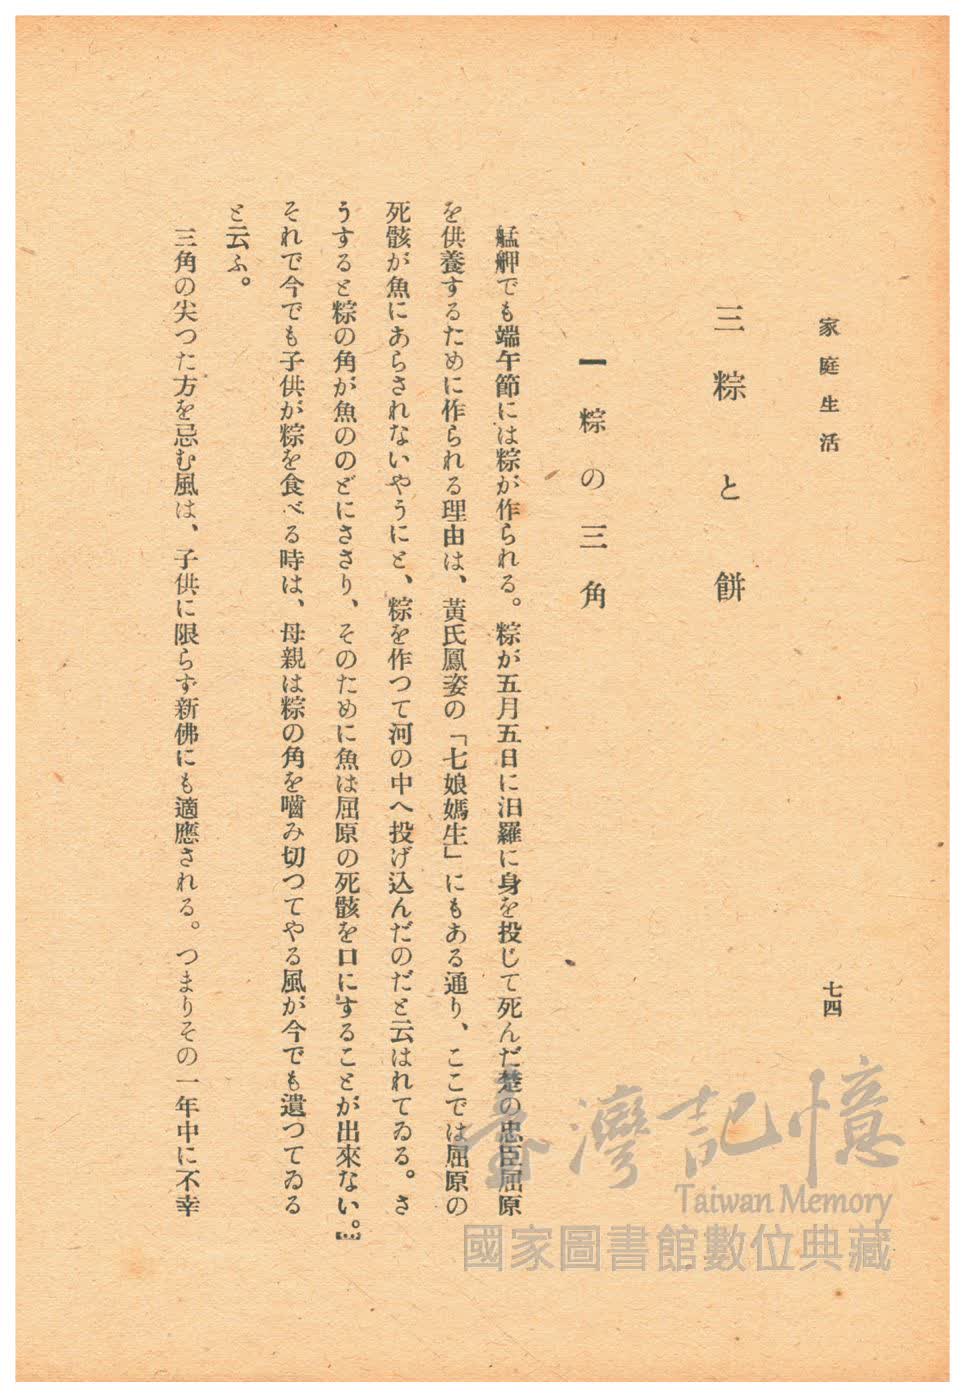 家庭生活
七四
三 粽と餅
一 粽の三角
艋舺でも端午節には粽が作られる。粽が五月五日に汨羅に身を投じて死んだ楚の忠臣屈原
を供養するために作られる理由は、黃氏鳳姿の「七娘媽生」にもある通り、ここでは屈原の
死骸が魚にあらされないやうにと、粽を作つて河の中へ投げ込んだのだと云はれてゐる。さ
うすると粽の角が魚ののどにささり、そのために魚は屈原の死骸を口にすることが出來ない。
それで今でも子供が粽を食べる時は、母親は粽の角を嚙み切つてやる風が今でも遺つてゐる
と云ふ。
三角の尖つた方を忌む風は、子供に限らず新佛にも適應される。つまりその一年中に不幸
臺灣記憶
Taiwan Memory
國家圖書館數位典藏